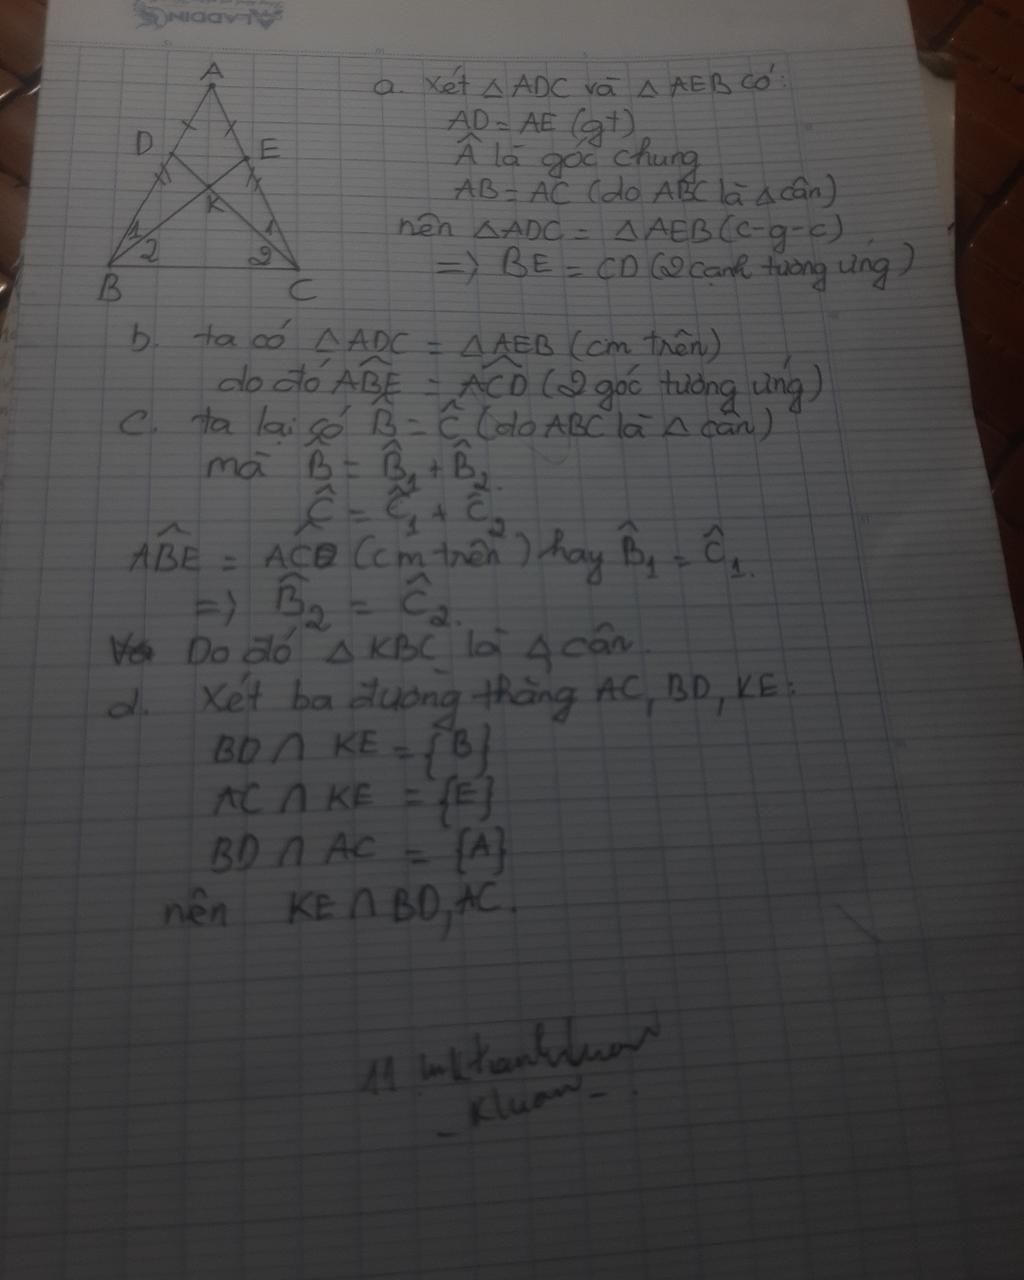 ALADDIN
A
D
E
K
1
2
1
2
B
C
a. Xét △ADC và △AEB có:
AD = AE (gt)
Â là góc chung
AB = AC (do ABC là △ cân)
nên △ADC = △AEB (c-g-c)
=> BE = CD (2 cạnh tương ứng)
b. ta có △ADC = △AEB (cm trên)
do đó ABE = ACD (2 góc tương ứng)
c. ta lại có B̂ = Ĉ (do ABC là △ cân)
mà B̂ = B̂1 + B̂2.
Ĉ = Ĉ1 + Ĉ2
ABE = ACD (cm trên) hay B̂1 = Ĉ1.
=> B̂2 = Ĉ2.
Do đó △ KBC là △ cân.
d. Xét ba đường thẳng AC, BD, KE:
BD ∩ KE = {B}
AC ∩ KE = {E}
BD ∩ AC = {A}
nên KE ∩ BD, AC.